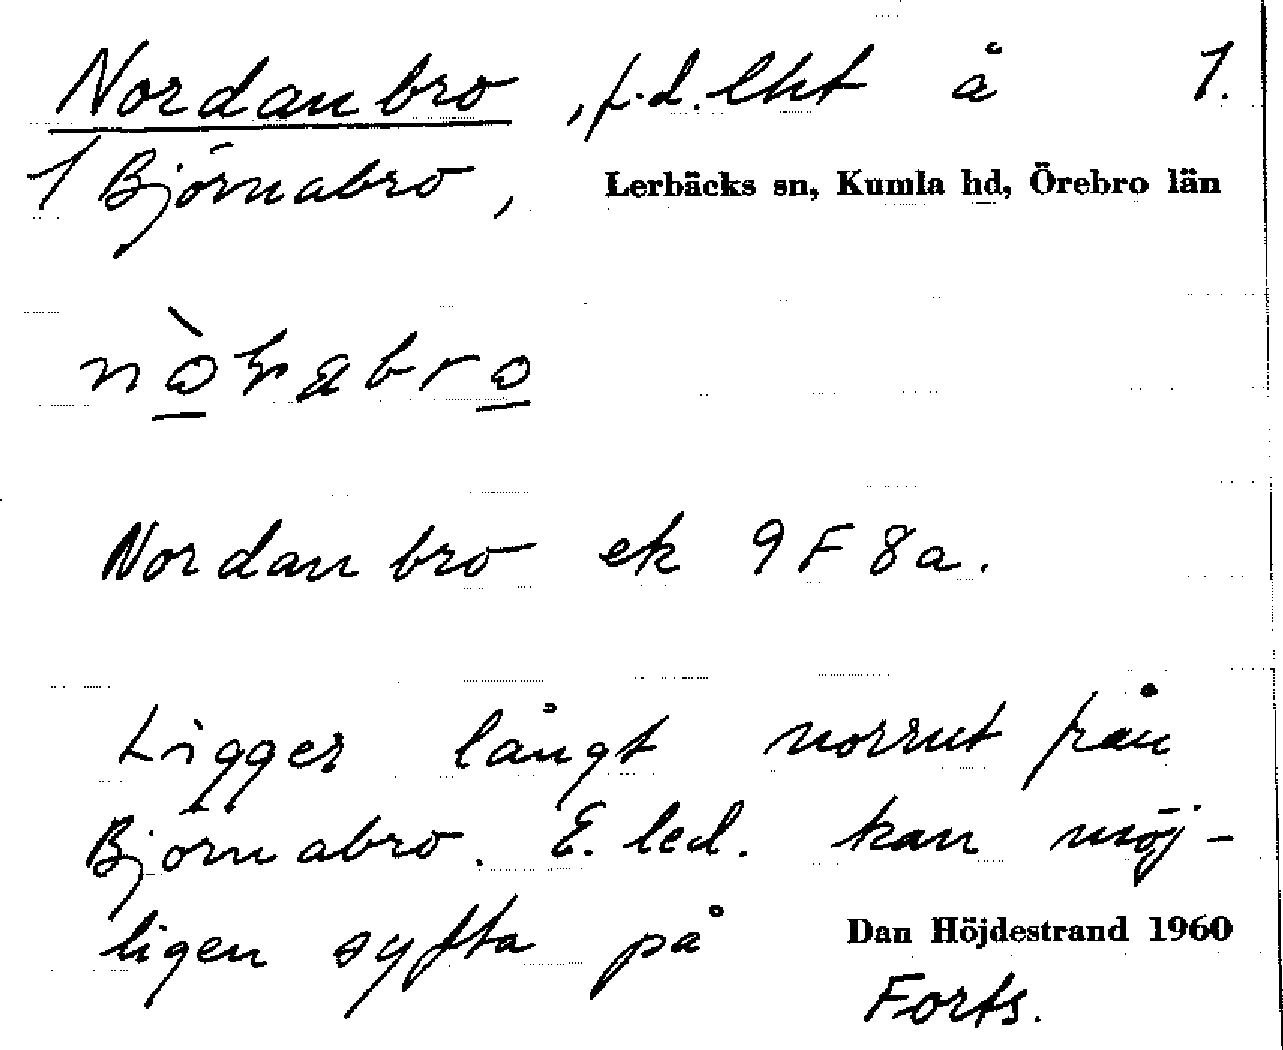 Nordanbro, f.d. lht å 1.
1 Björnabro, Lerbäcks sn, Kumla hd, Örebro län
Nordanbro ek 9F8a.
Ligger långt norrut från
Björnabro. E. led. kan möj-
ligen syfta på Dan Höjdestrand 1960
Forts.